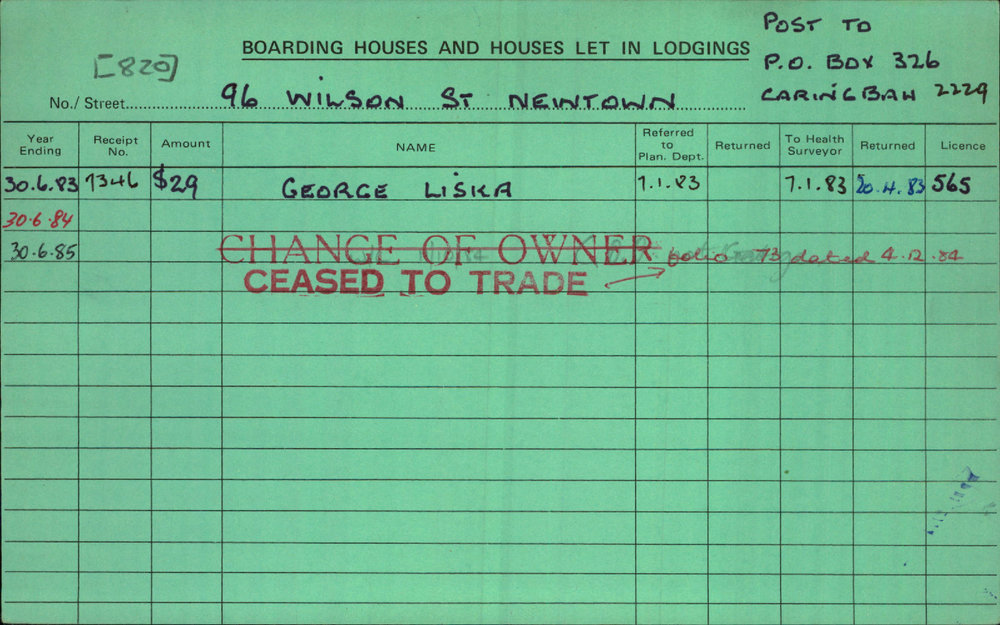 POST TO
BOARDING HOUSES AND HOUSES LET IN LODGINGS
P.O. BOX 326
[820]
CARINGBAH 2229
No./ Street 96 WILSON ST NEWTOWN
Year Ending Receipt No. Amount NAME Referred to Plan. Dept. Returned To Health Surveyor Returned Licence
30.6.83 7346 $29 GEORGE LISKA 7.1.83 7.1.83 20.4.83 565
30.6.84
30.6.85 CHANGE OF OWNER folio 73 dated 4.12.84
CEASED TO TRADE